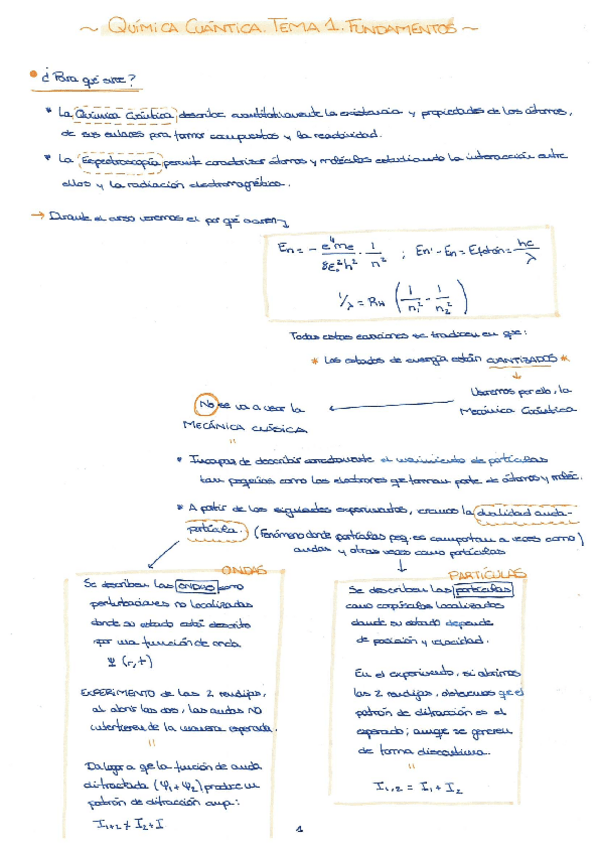 ~ QUÍMICA CUÁNTICA. TEMA 1. FUNDAMENTOS ~
• ¿Para qué sirve?
* La Química Cuántica describe cuantitativamente la existencia y propiedades de los átomos,
de sus enlaces para formar compuestos y la reactividad.
* La Espectroscopía permite caracterizar átomos y moléculas estudiando la interacción entre
ellos y la radiación electromagnética.
→ Durante el curso veremos el por qué ocurren
En = - e⁴me / 8ε₀²h² · 1/n² ; En' - En = Efotón = hc/λ
1/λ = RH (1/n₁² - 1/n₂²)
Todas estas ecuaciones se traducen en que:
* Los estados de energía están CUANTIZADOS *
Usaremos por ello, la
Mecánica Cuántica
No se va a usar la
MECÁNICA CLÁSICA
• Incapaz de describir correctamente el movimiento de partículas
tan pequeñas como los electrones que forman parte de átomos y moléc.
• A partir de los siguientes experimentos, creamos la dualidad onda-
partícula. (Fenómeno donde partículas peq. se comportan a veces como)
ondas y otras veces como partículas
ONDAS
Se describen las ONDAS como
perturbaciones no localizadas
donde su estado está descrito
por una función de onda
Ψ (r,t)
EXPERIMENTO de las 2 rendijas,
al abrir las dos, las ondas NO
interfieren de la manera esperada.
"
Da lugar a que la función de onda
difractada (Ψ₁ + Ψ₂) produce un
patrón de difracción
I₁+₂ ≠ I₂ + I
PARTÍCULAS
Se describen las partículas
como corpúsculos localizados
donde su estado depende
de posición y velocidad.
En el experimento, si abrimos
las 2 rendijas, obtenemos que el
patrón de difracción es el
esperado; aunque se generen
de forma discontinua.
"
I₁,₂ = I₁ + I₂
1